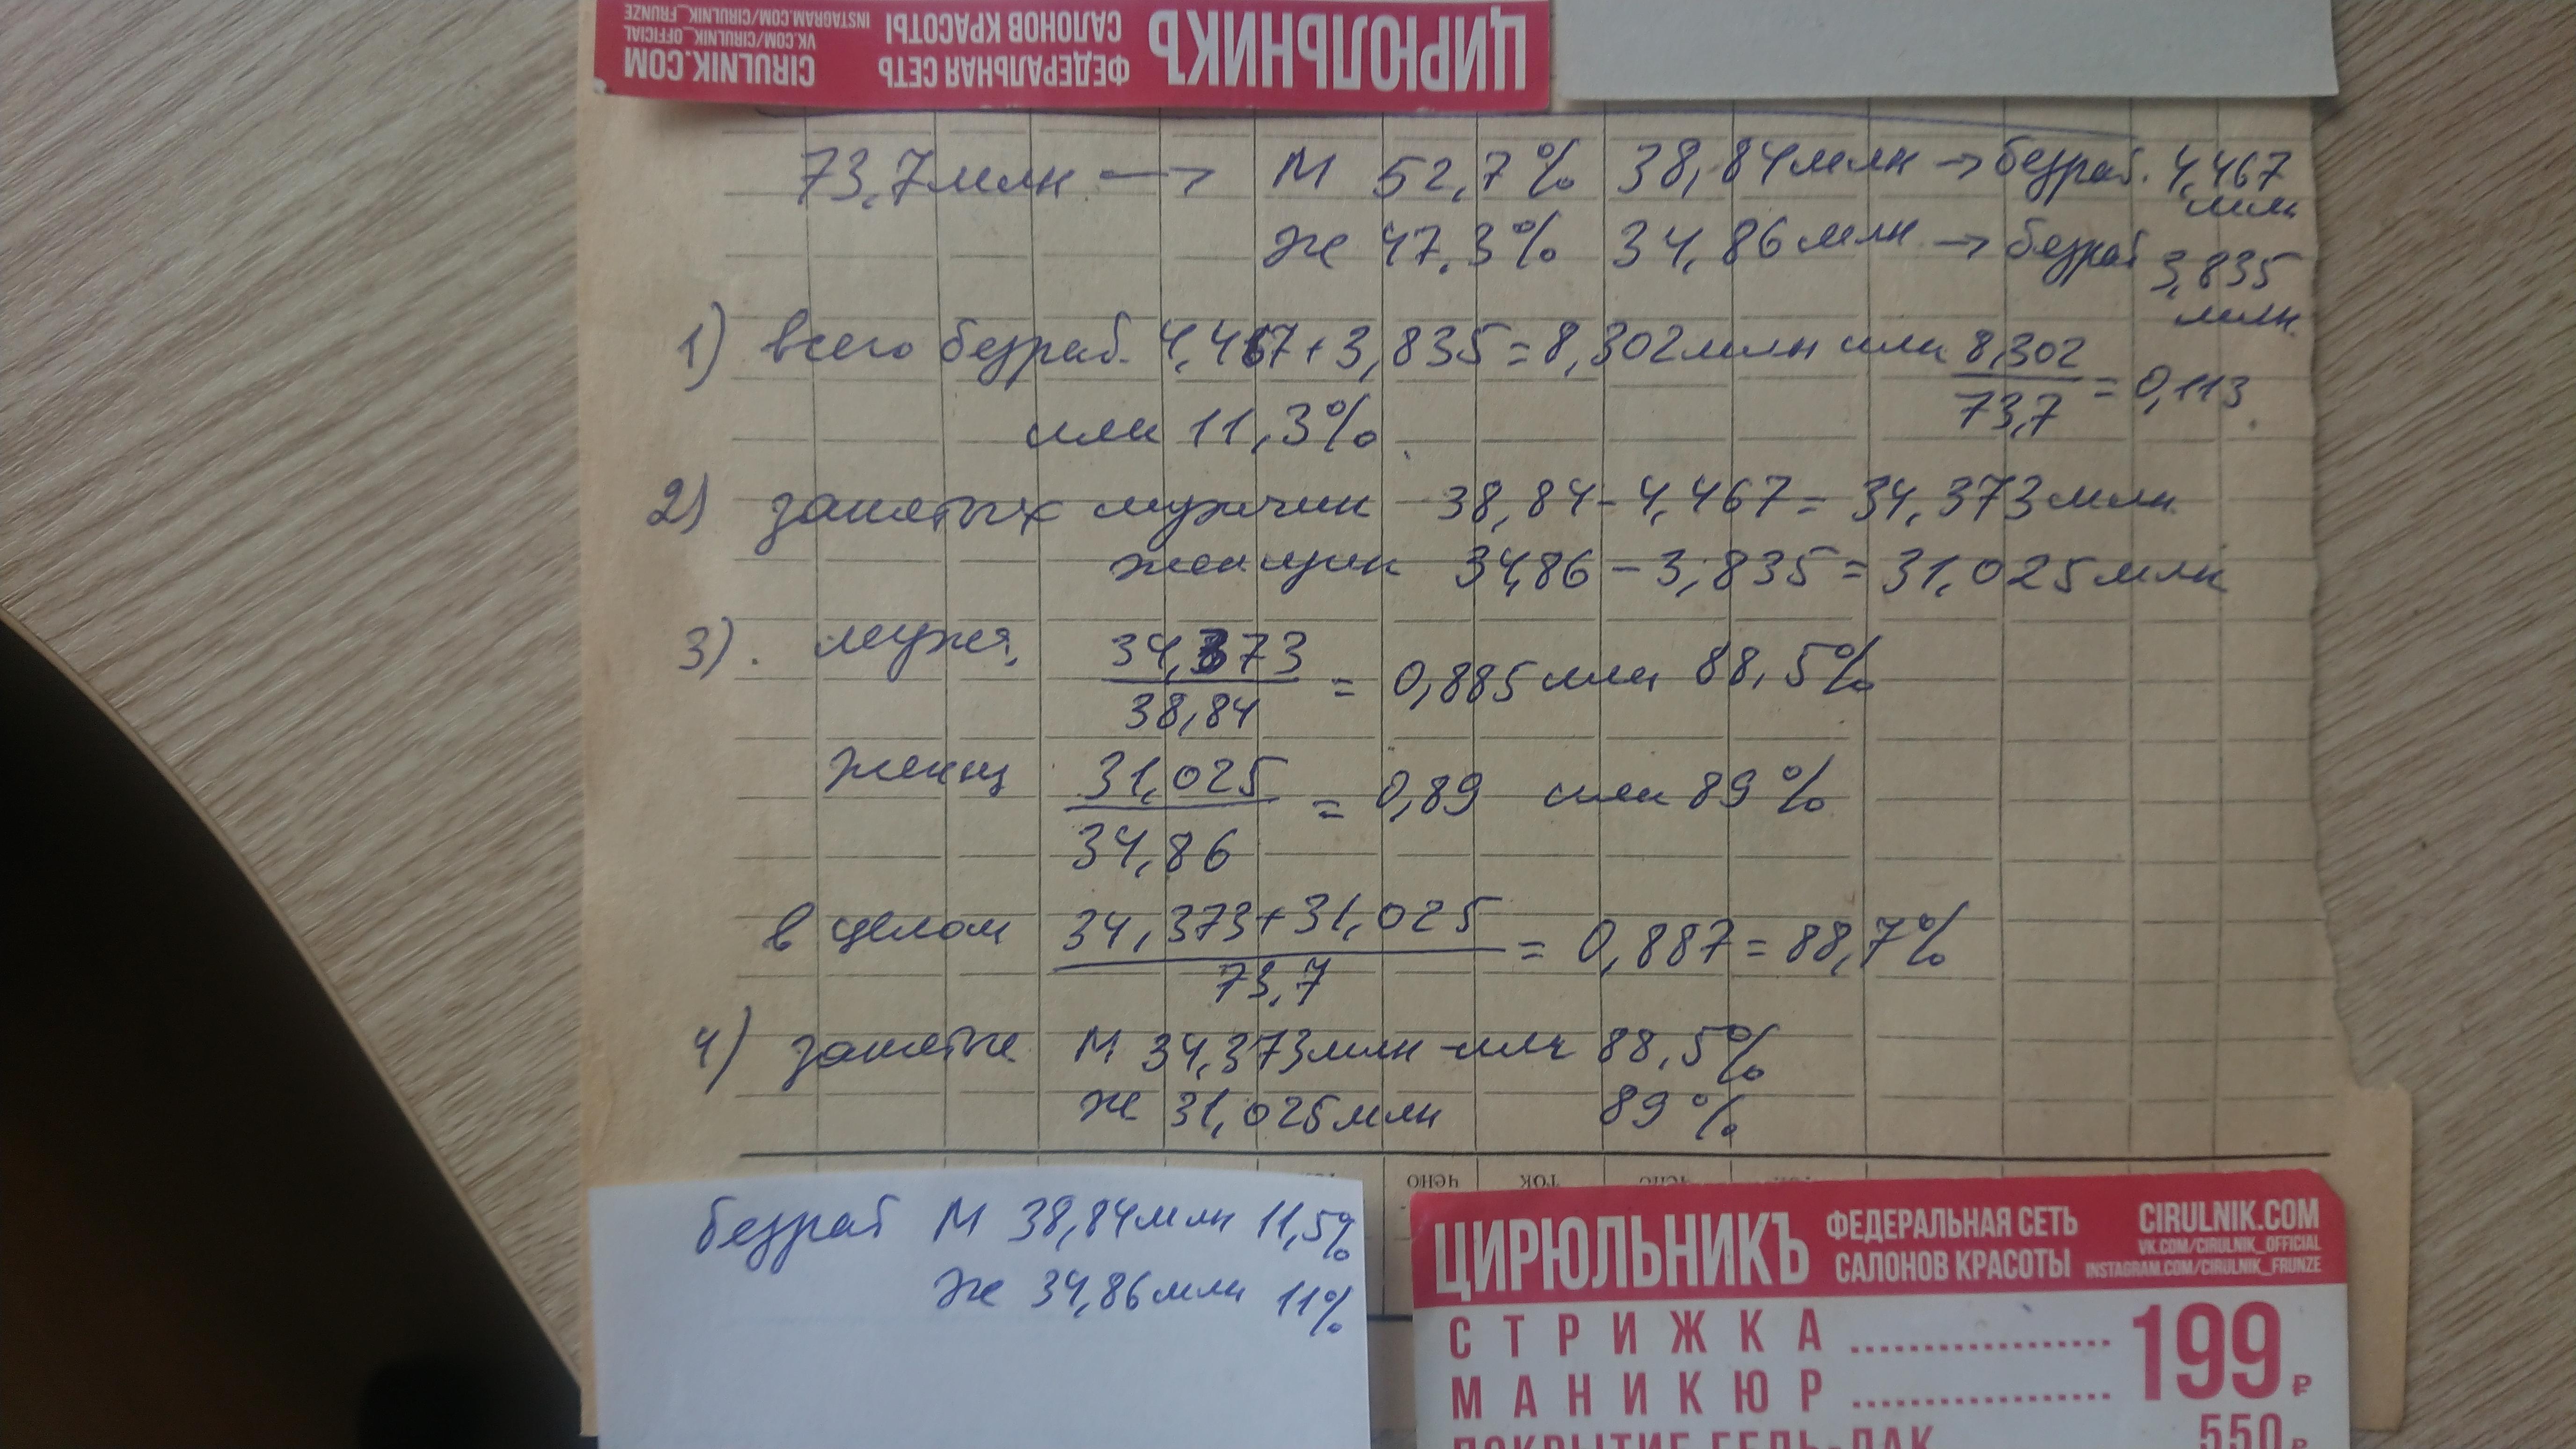 ЦИРЮЛЬНИКЪ ФЕДЕРАЛЬНАЯ СЕТЬ САЛОНОВ КРАСОТЫ
CIRULNIK.COM
VK.COM/CIRULNIK_OFFICIAL
INSTAGRAM.COM/CIRULNIK_FRUNZE
73,7 млн → М 52,7% 38,84 млн → безраб. 4,467 млн
Ж 47.3% 34,86 млн → безраб 3,835 млн.
1) всего безраб. 4,467 + 3,835 = 8,302 млн или 8,302 / 73,7 = 0,113
или 11,3%
2) занятых мужчин 38,84 - 4,467 = 34,373 млн
женщин 34,86 - 3,835 = 31,025 млн
3). мужч. 34,373 / 38,84 = 0,885 или 88,5%
женщ 31,025 / 34,86 = 0,89 или 89%
в целом 34,373 + 31,025 / 73,7 = 0,887 = 88,7%
4) занятые М 34,373 млн или 88,5%
Ж 31,025 млн 89%
чено ток
безраб М 38,84 млн 11,5%
Ж 34,86 млн 11%
ЦИРЮЛЬНИКЪ ФЕДЕРАЛЬНАЯ СЕТЬ САЛОНОВ КРАСОТЫ
CIRULNIK.COM
VK.COM/CIRULNIK_OFFICIAL
INSTAGRAM.COM/CIRULNIK_FRUNZE
СТРИЖКА 199 ₽
МАНИКЮР
ПОКРЫТИЕ ГЕЛЬ-ЛАК 550 ₽